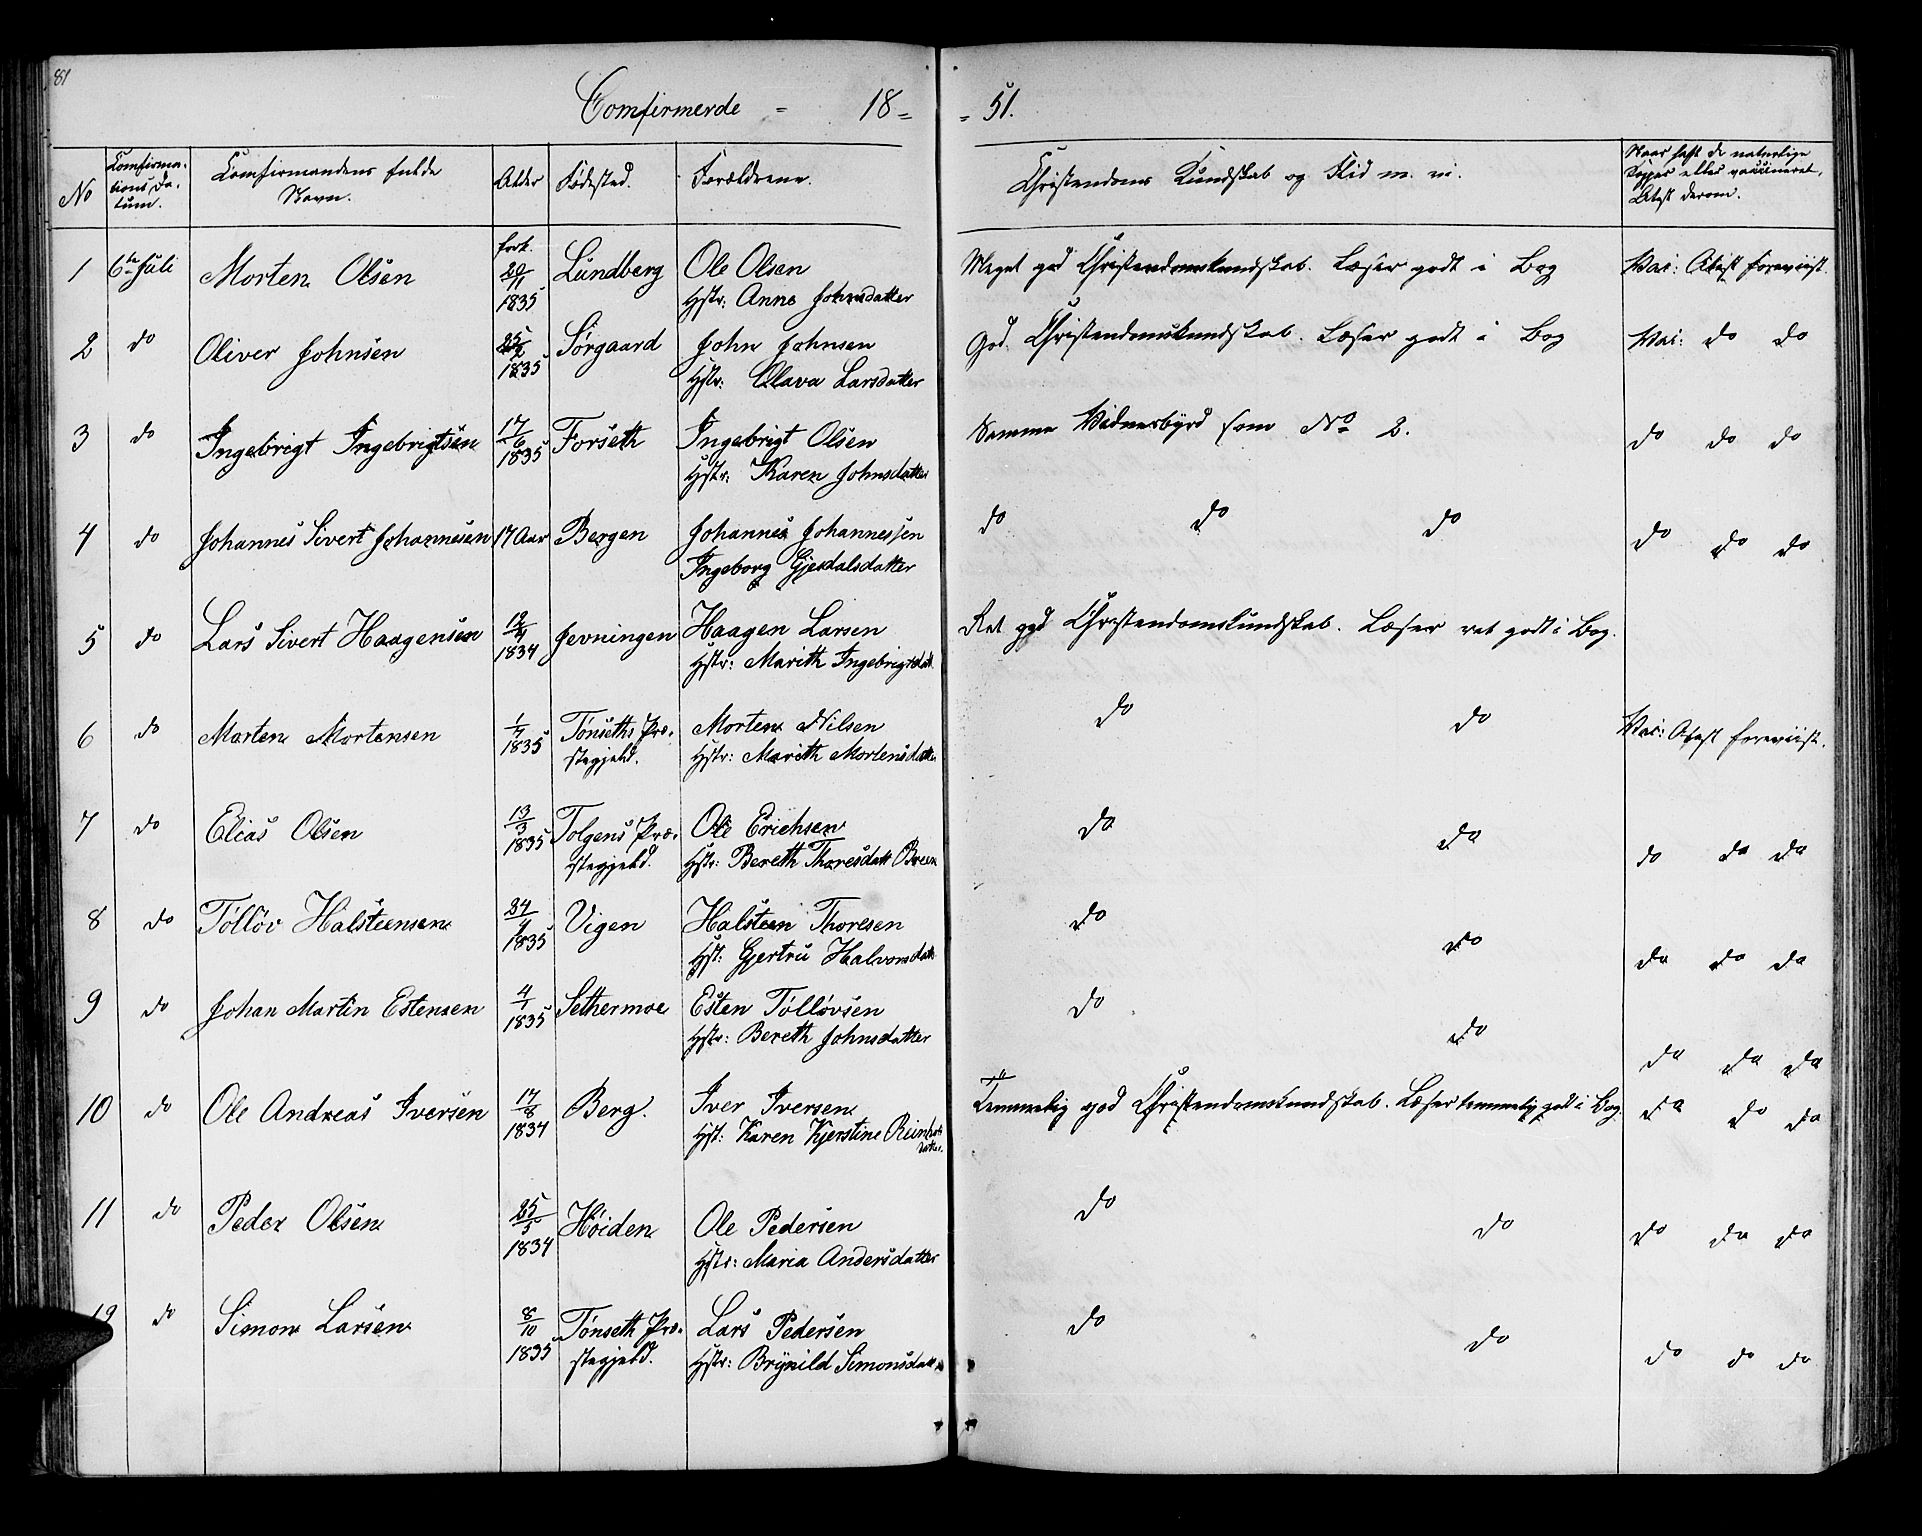 81
Comfirmerde = 18=
= 51.
No
Comfirma-
tions Da-
tum.
Comfirmandens fulde
Navn.
Alder
Fødested.
Forældrene.
Christendoms Kundskab og Flid m. m.
Naar haft de naturlige
Kopper eller vaccineret,
Atest derom.
1 6te Juli Morten Olsen født. 29/11 1835 Lundberg Ole Olsen
Hstr: Anne Johnsdatter
Meget god Christendomskundskab. Læser godt i Bog
Vac: Atest foreviist.
2 do Oliver Johnsen 1835 Sørgaard John Johnsen
Hstr: Olava Larsdatter
God Christendomskundskab. Læser godt i Bog
Vac: do do
3 do Ingebrigt Ingebrigtsen 17/6 1835 Forseth Ingebrigt Olsen
Hstr: Karen Johnsdatter
Samme Vidnesbyrd som No 2.
do do do
4 do Johannes Sivert Johannesen 17 Aar Bergen Johannes Johannessen
Ingeborg Gjesdalsdatter
do do do
do do do
5 do Lars Sivert Haagensen 12/4 1834 Jevningen Haagen Larsen
Hstr: Marith Ingebrigtsdatt
Ret god Christendomskundskab. Læser ret godt i Bog.
6 do Morten Mortensen 1/4 1835 Tønseths Præ-
stegjeld.
Morten Nilsen
Hstr: Marith Mortensdatter
do do
Vac: Atest foreviist.
7 do Elias Olsen 13/3 1835 Tolgens Præ-
stegjeld.
Ole Erichsen
Hstr: Bereth Thoresdatt Breen
do do
do do do
8 do Tølløv Halsteensen 24/4 1835 Vigen Halsteen Thoresen
Hst: Gjertru Halvorsdatt
do do
do do do
9 do Johan Martin Estensen 4/1 1835 Sethermoe Esten Tølløvsen
Hstr: Bereth Johnsdatter
do do
do do do
10 do Ole Andreas Iversen 17/8 1834 Berg. Iver Iversen
Hst: Karen Kjerstine
datter.
Temmelig god Christendomskundskab. Læser temmelig godt i Bog
do do do
11 do Peder Olsen 25/5 1834 Høiden Ole Pedersen
Hstr: Maria Andersdatter
do do
do do do
12 do Simon Larsen 8/10 1835 Tønseth Præ-
stegjeld.
Lars Pedersen
Hstr: Brynild Simonsdatt
do do
do do do